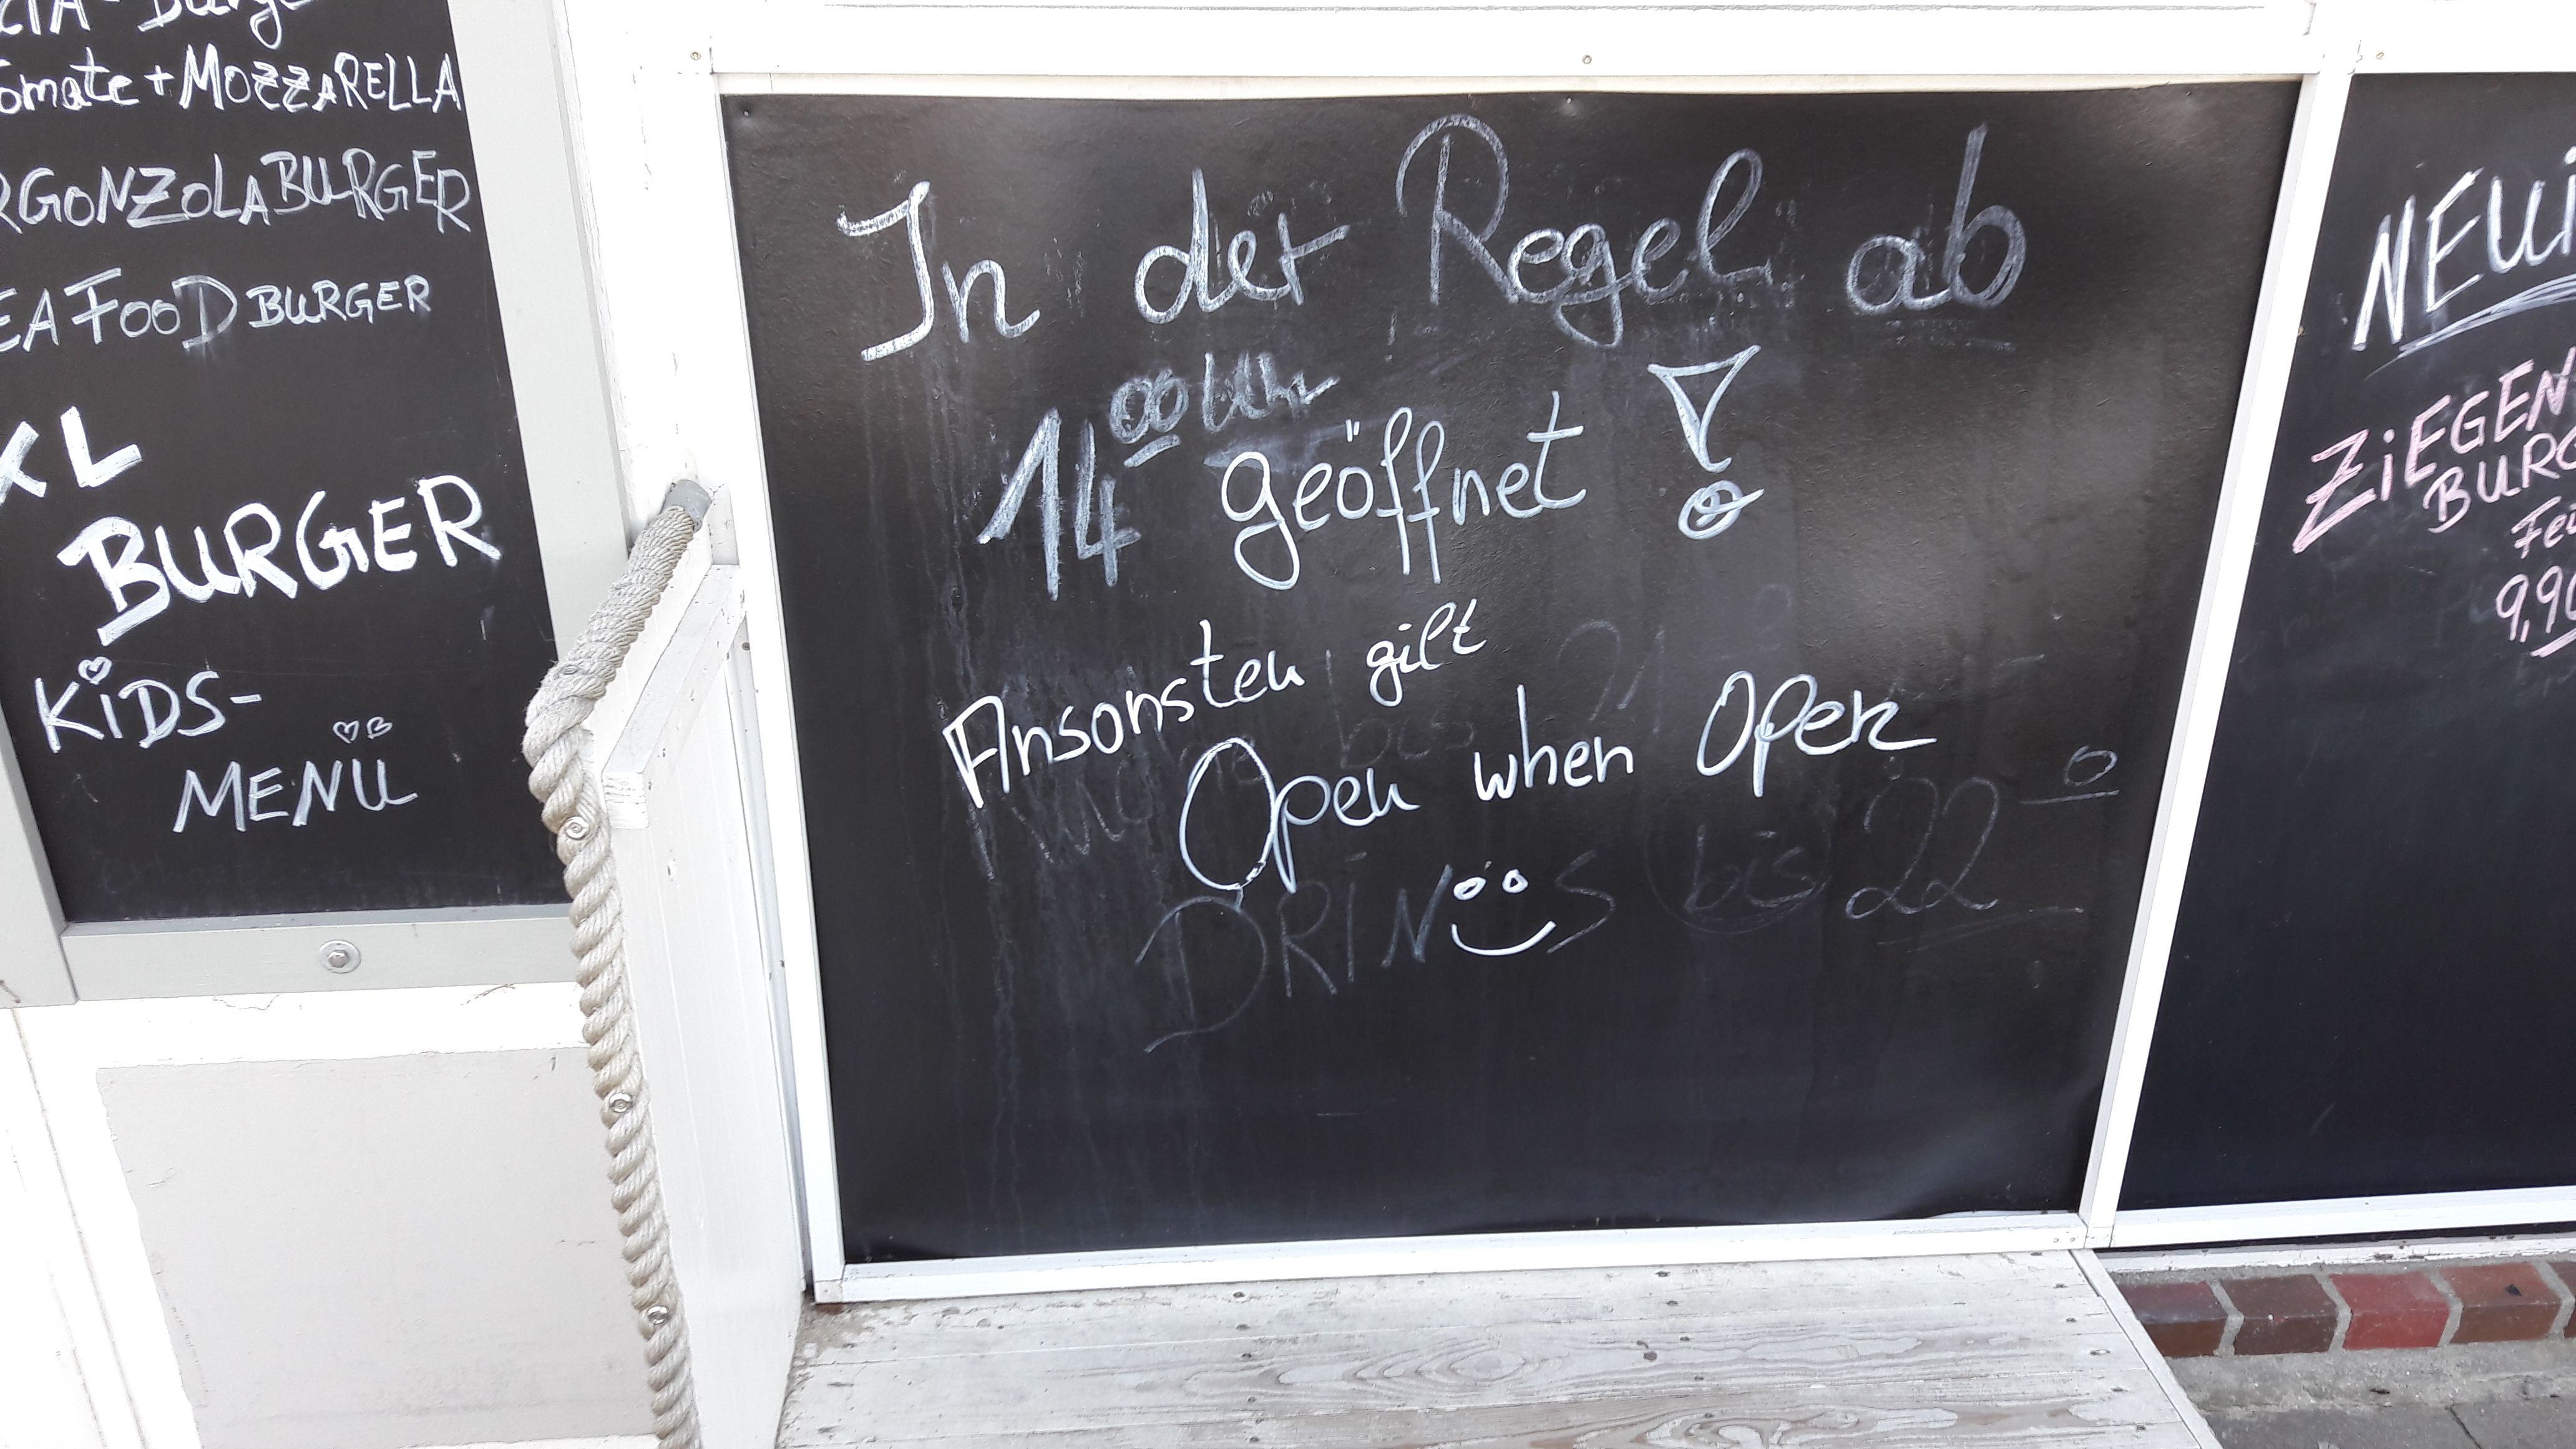 Tomate + MOZZARELLA
GONZOLA BURGER
SEAFOOD BURGER
XL
BURGER
KiDS-
MENÜ
In der Regel ab
14 00 Uhr geöffnet !
Ansonsten gilt
Open when Open
DRiN S bis 22
NEU
ZiEGEN
BURG
9,90